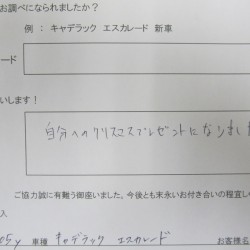 お調べになられましたか？
例 ： キャデラック エスカレード 新車
ード
いします！
自分へのクリスマスプレゼントになりまし
ご協力誠に有難う御座いました。今後とも末永いお付き合いの程宜しく
入
05y 車種 キャデラック エスカレード
お客様名